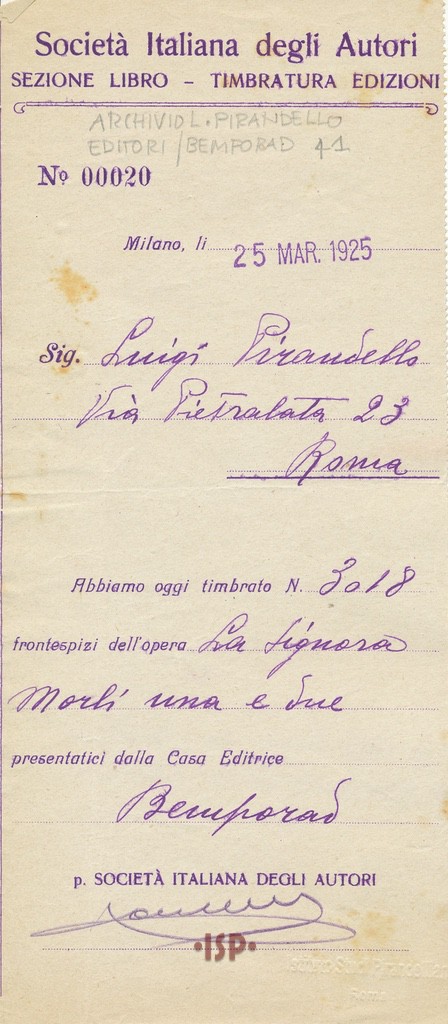 Società Italiana degli Autori
SEZIONE LIBRO – TIMBRATURA EDIZIONI
ARCHIVIO L. PIRANDELLO
EDITORI / BEMPORAD 41
Nº 00020
Milano, li 25 MAR. 1925
Sig. Luigi Pirandello
Via Pietralata 23
Roma
Abbiamo oggi timbrato N. 3018
frontespizi dell'opera La Signora
Morli una e due
presentatici dalla Casa Editrice
Bemporad
p. SOCIETÀ ITALIANA DEGLI AUTORI
•ISP•
Roma